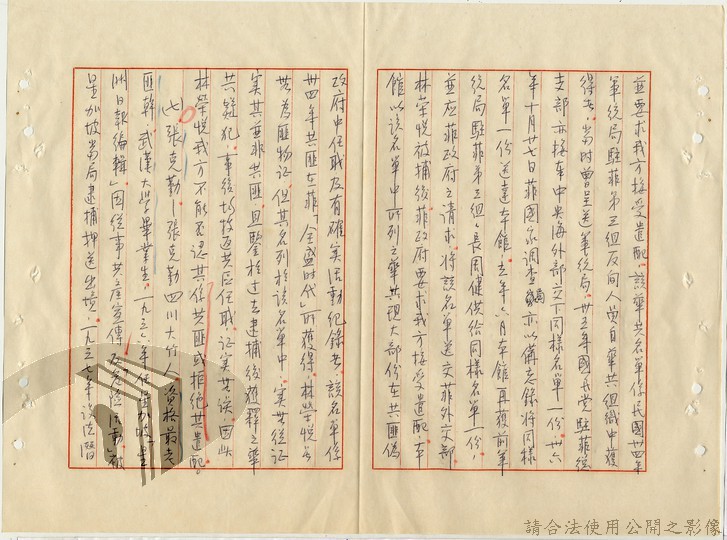 並要求我方接受遣配。該華共名單係民國卅四年
軍統局駐菲第三組反間人員自華共組織中獲
得者，當時曾呈送軍統局，卅五年國民黨駐菲總
支部亦接奉中央海外部交下同樣名單一份，卅六
年十月廿七日菲國家調查局亦以備忘錄將同樣
名單一份送達本館，去年八月本館再獲前軍
統局駐菲第三組組長周健供給同樣名單一份，
並应菲政府之請求，將該名單送交菲外交部
林榮悅被捕後菲政府要求我方接受遣配，本
館以該名單中所列之華共現大部份在共匪偽
政府中任職及有確實活動紀錄者，該名單係
卅四年共匪在菲「全盛时代」所獲得，林榮悅
為匪物証，但其名列於該名單中，實無從証
實其並非共匪，且鑒於过去逮捕後獲釋之華
共疑犯，事後均投返共區任職，証实其误，因此
林榮悅我方不能否認其係共匪或拒絕其遣配。
七 張克勤－張克勤四川大竹人，資格最老
匪幹，武漢大學畢業生，一九三六年任新加坡「星
洲日報編輯」因從事共產宣傳及危險活動被
星加坡當局逮捕押送出境，一九三七年設法潛
請合法使用公開之影像